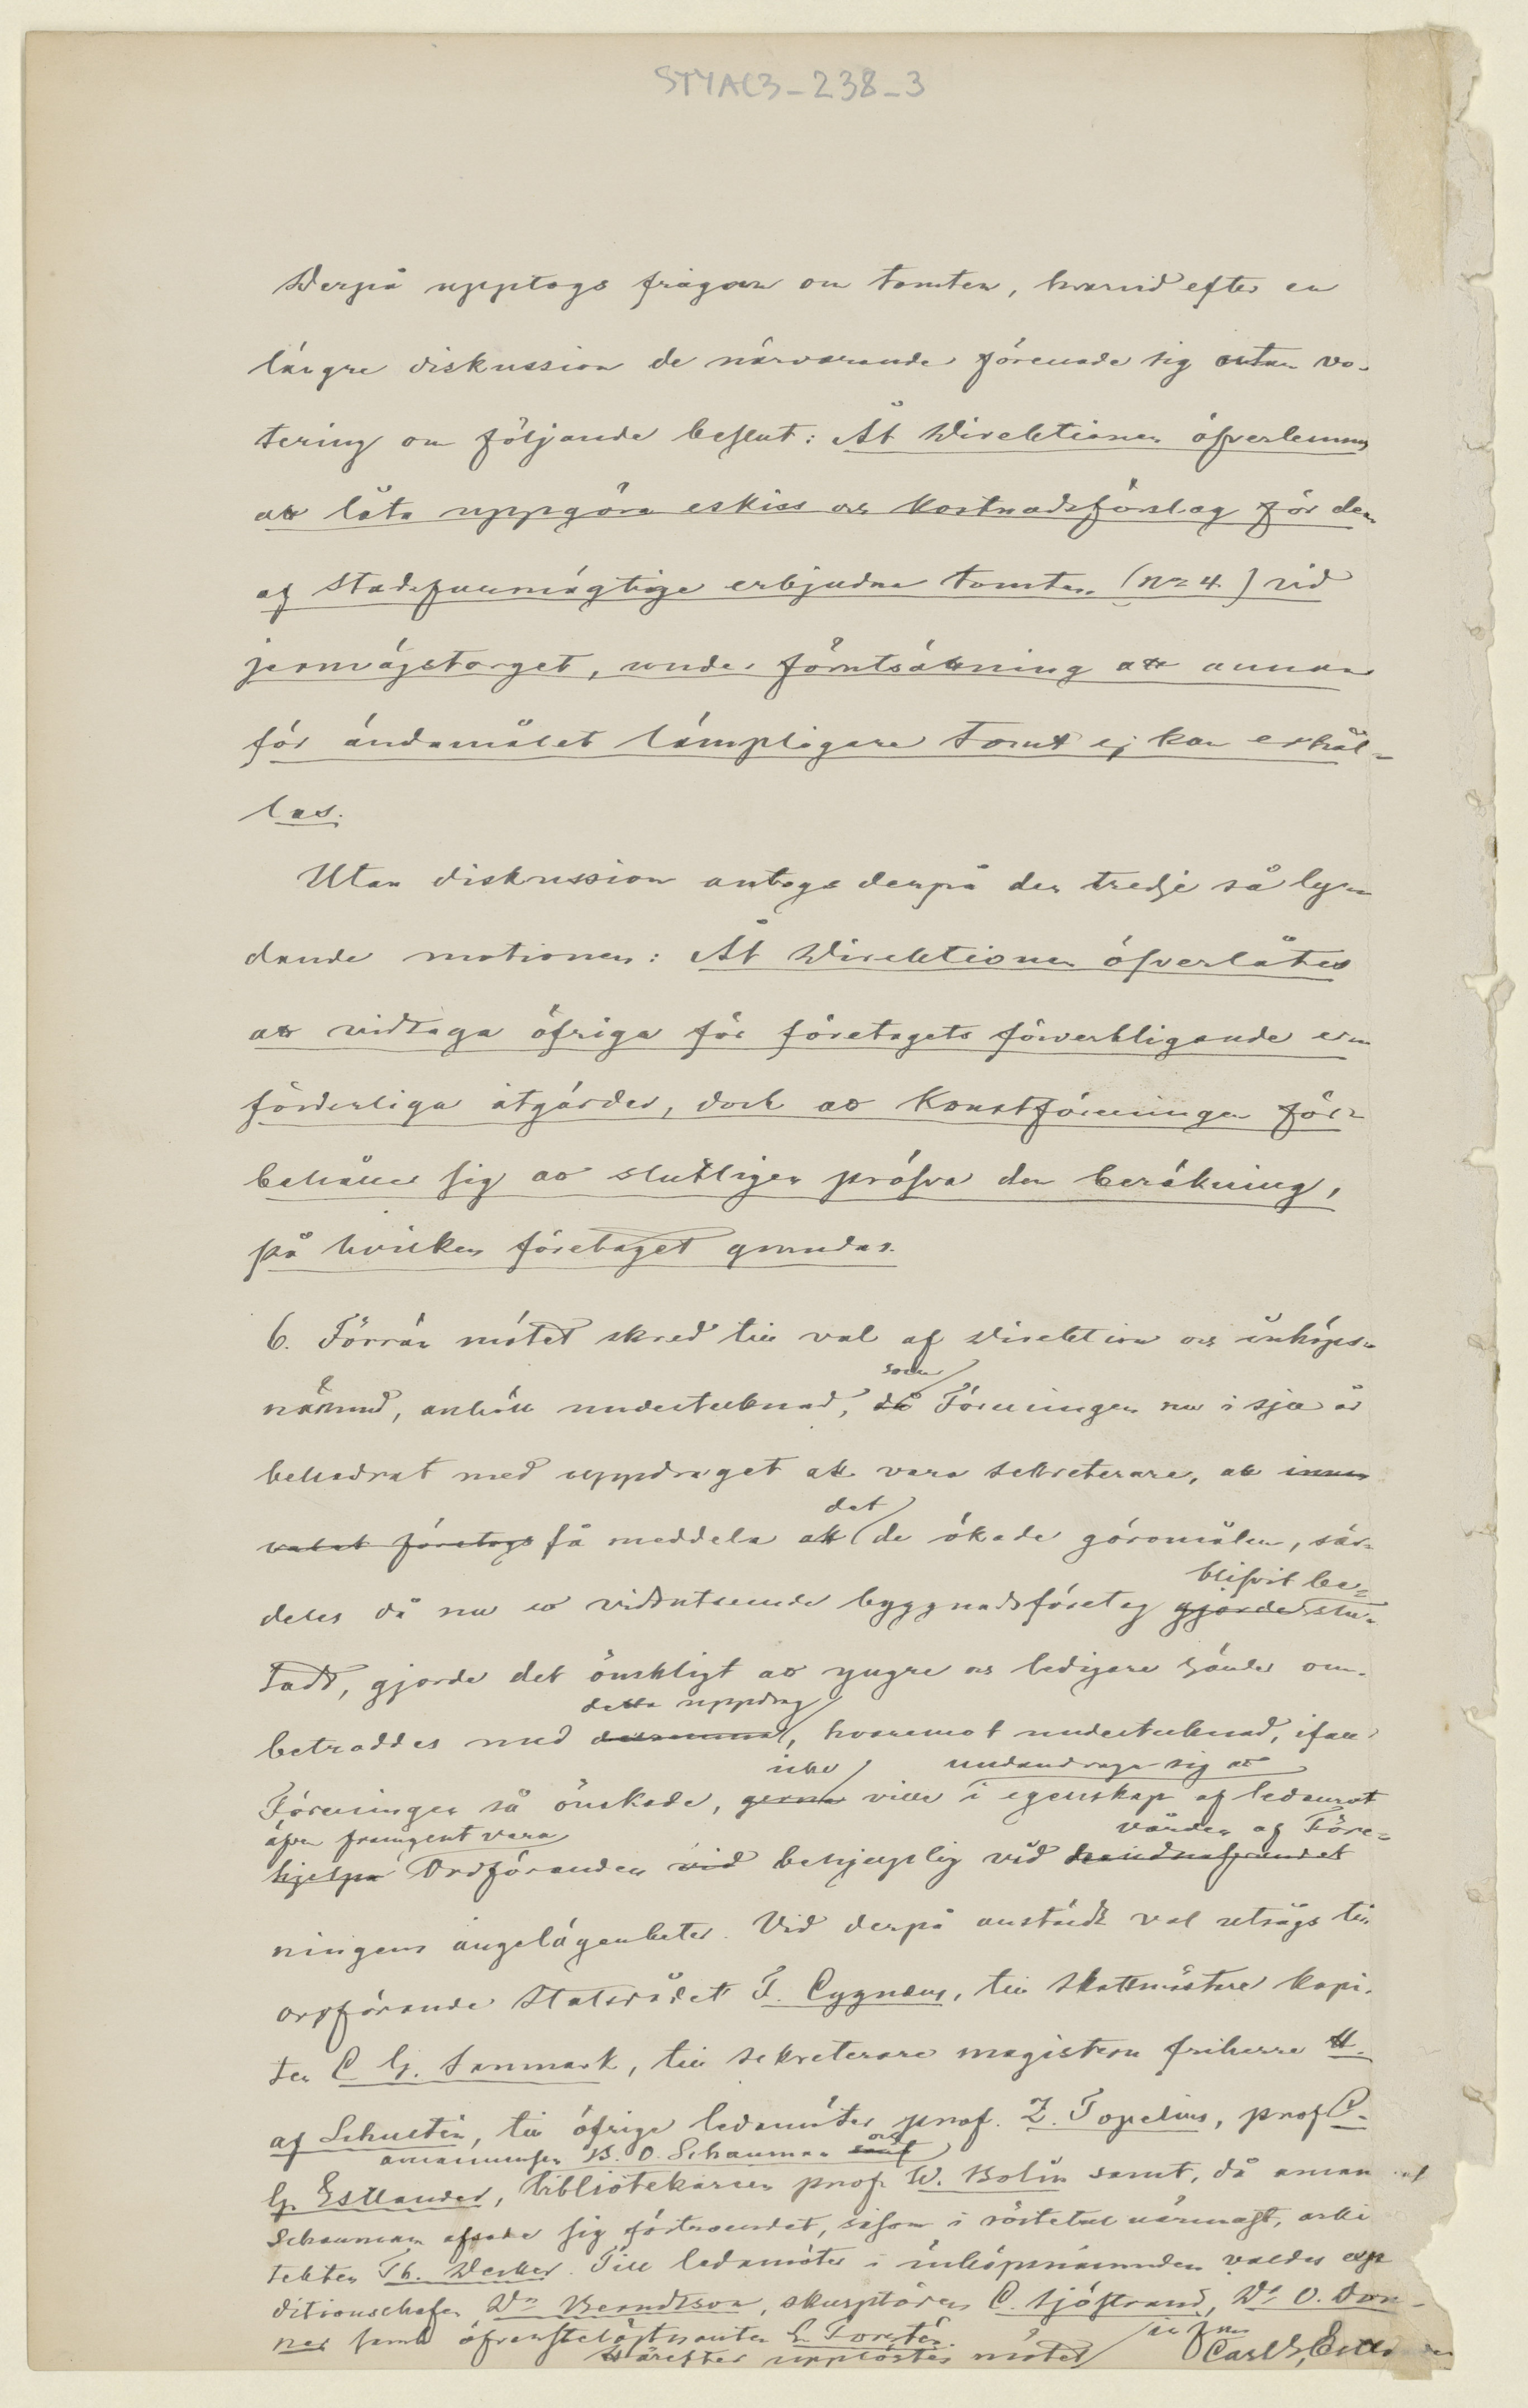 STYAC3_238_3
Derpå upptogs frågan om tomten, hvarvid efter en
längre diskussion de närvarande förenade sig utan vo-
tering om följande beslut: Åt Direktionen öfverlemnas
att låta uppgöra eskiss och kostnadsförslag för den
af Stadsfullmägtige erbjudna tomten (No 4) vid
jernvägstorget, under förutsättning att annan
för ändamålet lämpligare tomt ej kan erhål-
las.
Utan diskussion antogs derpå den tredje så lyn
dande motionen: Åt Direktionen öfverlåtes
att vidtaga öfriga för företagets förverkligande erfor
förderliga åtgärder, dock att Konstföreningen för-
behåller sig att slutligen pröfva den beräkning,
på hvilken företaget grundas.
6. Förrän mötet skred till val af direktion och inköps-
som
nämnd, anhöll undertecknad, då Föreningen nu i sju år
behedrat med uppdraget att vara sekreterare, att innan
det
valet företogs få meddela att de ökade göromålen, sär-
blifvit be-
deles då nu ett vidtutseende byggnadsföretag gjorde slu-
tadt, gjorde det önskligt att yngre och ledigare händer om-
detta uppdrag
betroddes med densamma, hvaremot undertecknad, ifall
icke undandraga sig att
Föreningen så önskade, gerna ville i egenskap af ledamot
äfven framgent vara vården af Före-
hjelpa Ordföranden vid behjelplig vid
ningens angelägenheter. Vid derpå anstäldt val utsågs till
orpförande Statsrådet F. Cygnæus, till skattmästare kapi-
ten C G. Sanmark, till sekreterare magistern friherre H.
af Schultén, till öfrige ledamöter prof. Z. Topelius, prof C.
amanuensen B. O. Schauman och
G. Estlander, bibliotekarien prof W. Bolin samt, då aman
Schauman afsade sig förtroendet, såsom i röstetal närmast, arki
tekten Th. Decker. Till ledamöter i inköpsnämnden valdes expe
ditionschefen Dr Berndtson, skulptören C. Sjöstrand, Dr O. Don-
ner samt öfverstelöjtnanten G. Forstén.
Härefter upplöstes mötet
Carl G. Estlander